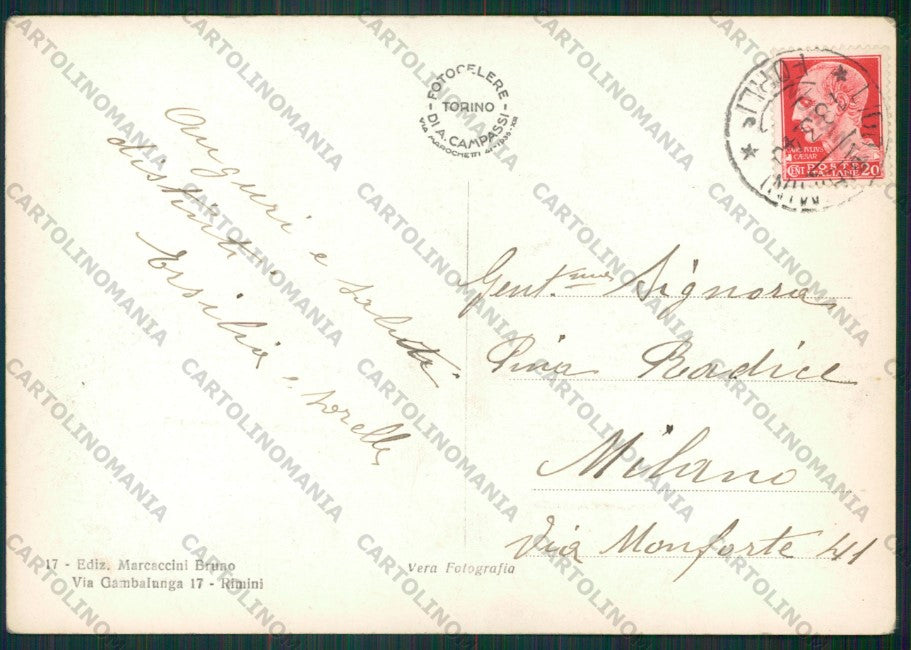 FOTOCELERE
TORINO
DI A. CAMPASSI
FORLI
IVLIVS
CAESAR
CENT POSTE 20
ITALIANE
Auguri e saluti
distinti.
Ersilia e sorelle
Gent.ma Signora
Pina Radice
Milano
Via Monforte 41
17 - Ediz. Marcaccini Bruno
Via Gambalunga 17 - Rimini
Vera Fotografia
CARTOLINOMANIA